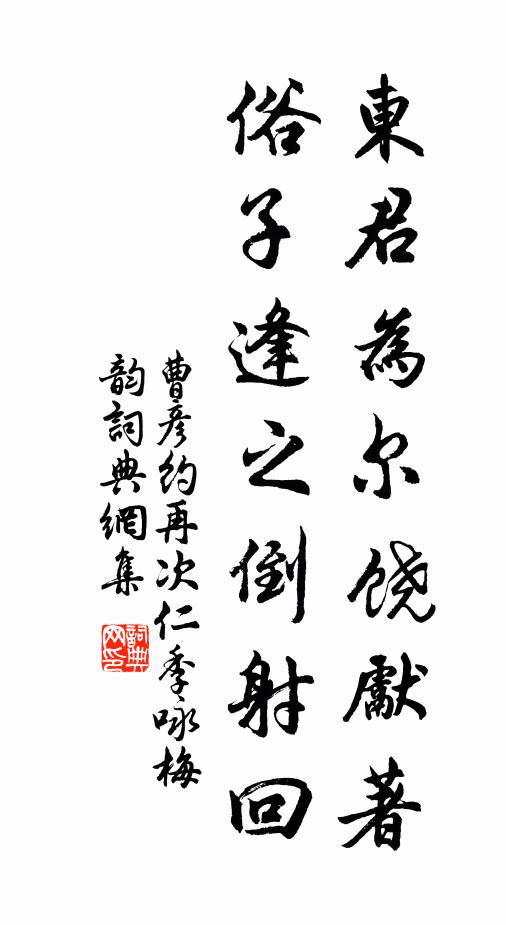 東君為尔饒獻著
俗子逢之倒射回
曹彥約再次仁季咏梅
韵詞典網集
詞典
网印